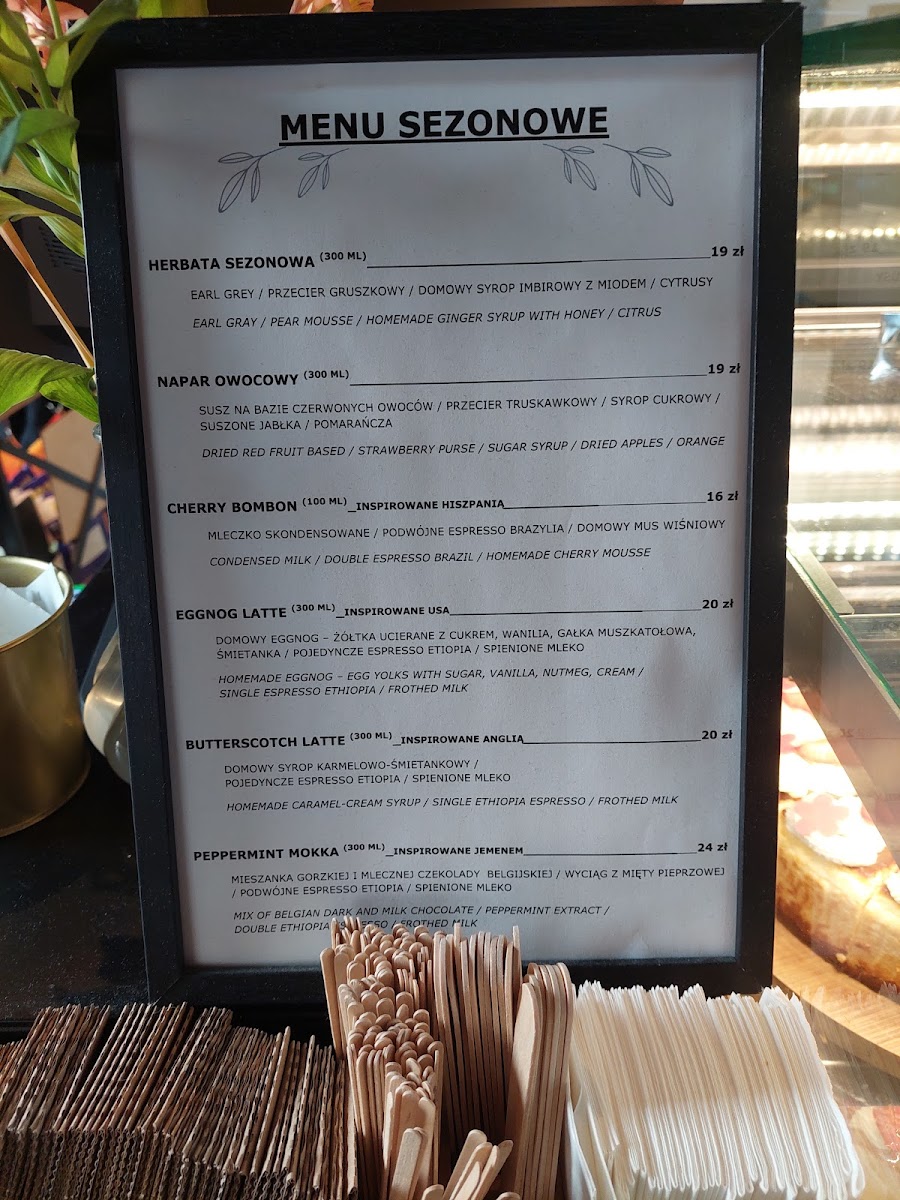 MENU SEZONOWE
HERBATA SEZONOWA (300 ML) 19 zł
EARL GREY / PRZECIER GRUSZKOWY / DOMOWY SYROP IMBIROWY Z MIODEM / CYTRUSY
EARL GRAY / PEAR MOUSSE / HOMEMADE GINGER SYRUP WITH HONEY / CITRUS
NAPAR OWOCOWY (300 ML) 19 zł
SUSZ NA BAZIE CZERWONYCH OWOCÓW / PRZECIER TRUSKAWKOWY / SYROP CUKROWY /
SUSZONE JABŁKA / POMARAŃCZA
DRIED RED FRUIT BASED / STRAWBERRY PURSE / SUGAR SYRUP / DRIED APPLES / ORANGE
CHERRY BOMBON (100 ML)_INSPIROWANE HISZPANIĄ 16 zł
MLECZKO SKONDENSOWANE / PODWÓJNE ESPRESSO BRAZYLIA / DOMOWY MUS WIŚNIOWY
CONDENSED MILK / DOUBLE ESPRESSO BRAZIL / HOMEMADE CHERRY MOUSSE
EGGNOG LATTE (300 ML)_INSPIROWANE USA 20 zł
DOMOWY EGGNOG – ŻÓŁTKA UCIERANE Z CUKREM, WANILIA, GAŁKA MUSZKATOŁOWA,
ŚMIETANKA / POJEDYNCZE ESPRESSO ETIOPIA / SPIENIONE MLEKO
HOMEMADE EGGNOG – EGG YOLKS WITH SUGAR, VANILLA, NUTMEG, CREAM /
SINGLE ESPRESSO ETHIOPIA / FROTHED MILK
BUTTERSCOTCH LATTE (300 ML)_INSPIROWANE ANGLIĄ 20 zł
DOMOWY SYROP KARMELOWO-ŚMIETANKOWY /
POJEDYNCZE ESPRESSO ETIOPIA / SPIENIONE MLEKO
HOMEMADE CARAMEL-CREAM SYRUP / SINGLE ETHIOPIA ESPRESSO / FROTHED MILK
PEPPERMINT MOKKA (300 ML)_INSPIROWANE JEMENEM 24 zł
MIESZANKA GORZKIEJ I MLECZNEJ CZEKOLADY BELGIJSKIEJ / WYCIĄG Z MIĘTY PIEPRZOWEJ
/ PODWÓJNE ESPRESSO ETIOPIA / SPIENIONE MLEKO
MIX OF BELGIAN DARK AND MILK CHOCOLATE / PEPPERMINT EXTRACT /
DOUBLE ETHIOPIA ESPRESSO / FROTHED MILK